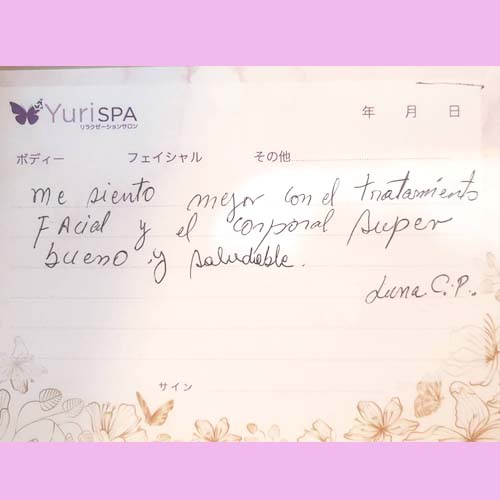 YuriSPA
リラクゼーションサロン
年 月 日
ボディー フェイシャル その他
me siento mejor con el tratamiento
FAcial y el corporal super
bueno y saludable.
Luna C.P.
サイン